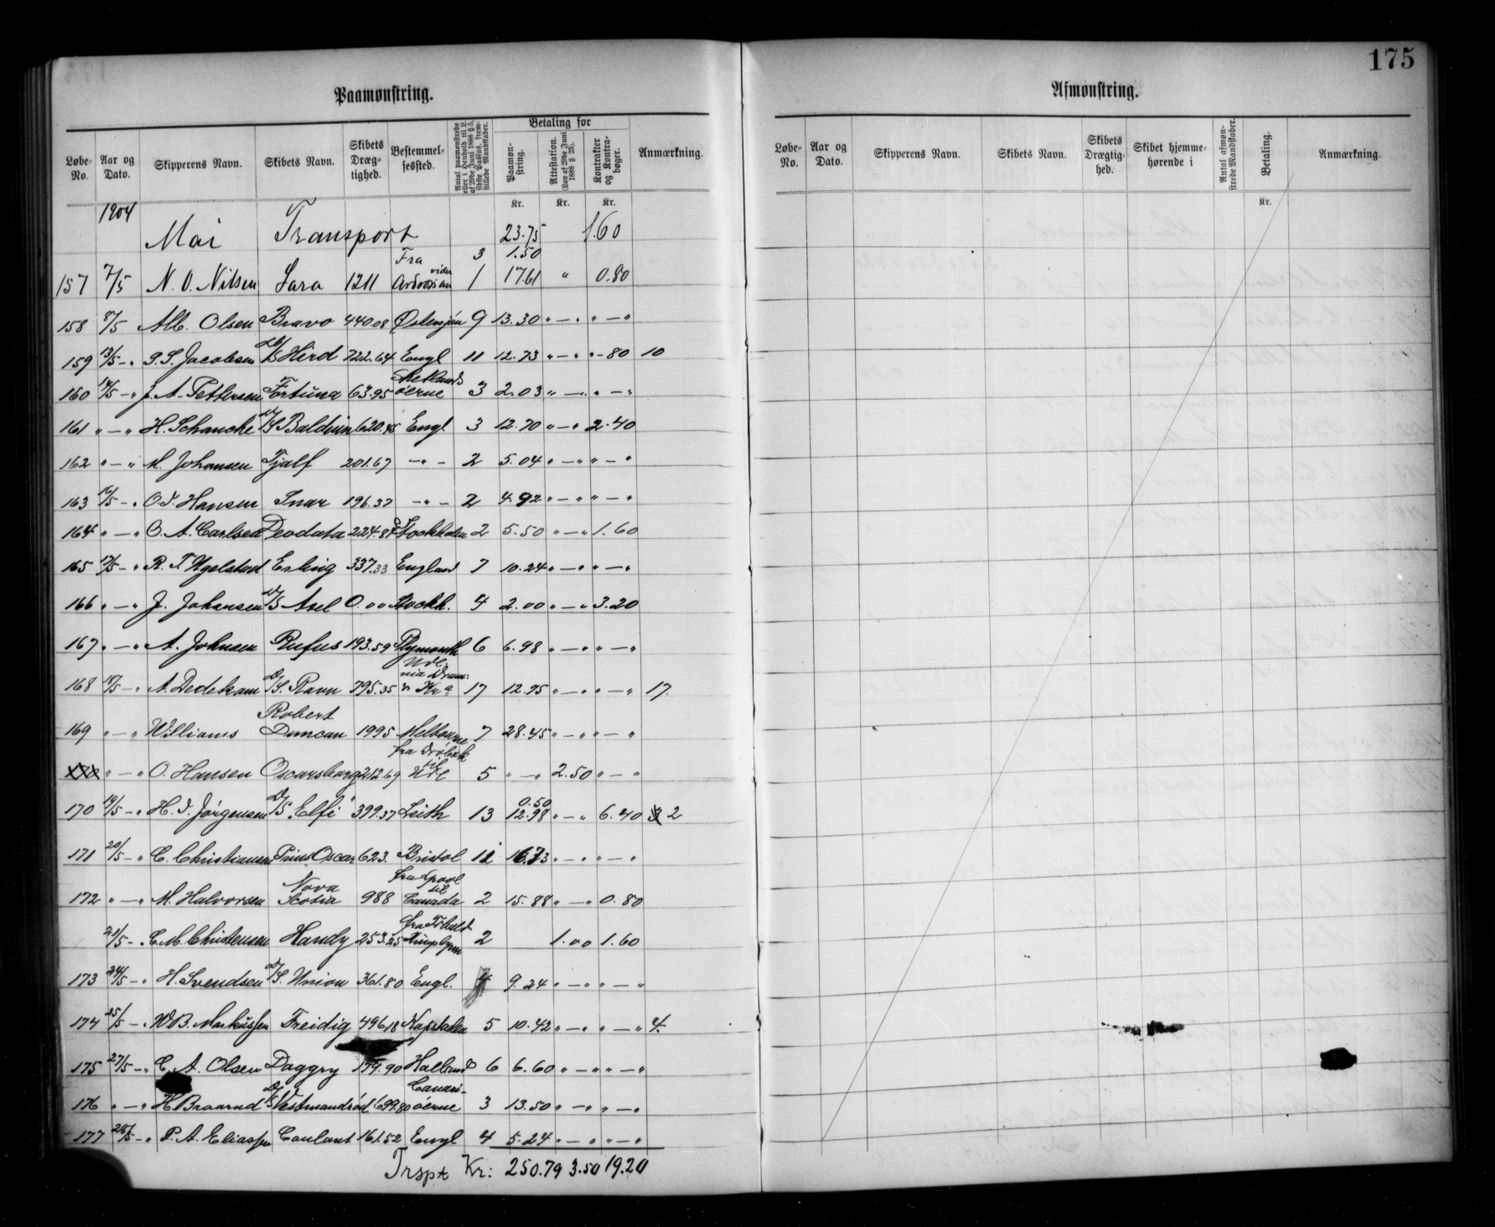 175
Paamønstring.
Løbe-No.
Aar og Dato.
Skipperens Navn.
Skibets Navn.
Skibets Dræg-tighed.
Bestemmel-sessted.
Betaling for
Paamøn-string.
Attestation.
Kontrakter og Kontra-bøger.
Anmærkning.
Kr. Kr. Kr.
1904 Mai Transport 23.75 1.60
Fra 3 1.50
157 7/5 N. O. Nilsen Sara 1211 1 17.61 " 0.80
158 8/5 Alb. Olsen Bravo 440.08 9 13.30 " — " " — "
159 13/5 — " P. S. Jacobsen D/S Hird 722.64 Engl 11 12.73 " — " " - 80 10
160 14/5 — " J. A. Pettersen Fortuna 63.95 øerne 3 2.03 " — " " — "
161 " — " H. Schanche D/S Baldwin 620.45 Engl 3 12.70 " — " 2.40
162 " — " M. Johansen Fjalf 201.67 — " — 2 5.04 " — " " — "
163 16/5 — " O. J. Hansen Snar 196.37 — " — 2 4.92 " — " " — "
164 " — " O. A. Carlsen Deodata 224.88 Stockholm 2 5.50 " — " 1.60
165 17/5 — " R. T. Ugelstad Erling 337.33 England 7 10.24 " — " " — "
166 " — " J. Johansen D/S Axel 0.00 Stockh. 4 2.00 " — " 3.20
167 " — " A. Johnsen Rufus 193.59 Plymouth 6 6.98 " — " " — "
168 — " A. Dedekam D/S. Ravn 795.35 17 12.95 " — " " — " 17
169 " — " Williams Robert Duncan 1995 Melbourne 7 28.45 " — " " — "
" — " O. Hansen Oscarsborg 1212.69 fra Drøbak til Udl 5 " — " 2.50 " — "
170 19/5 — " H. J. Jørgensen D/S Elfi 399.37 Leith 13 0.50 12.98 " — " 6.40 2
171 20/5 — " C. Christiansen Prins Oscar 623. Bristol 11 " — " " — "
172 " — " M. Halvorsen Nova Scotia 988 til Canada 2 15.88 " — " 0.80
21/5 — " C. M. Christensen Handy 253.25 2 1.00 1.60
173 24/5 — " H. Svendsen D/S. Union 361.80 Engl. 4 9.24 " — " " — "
174 25/5 — " W. B. Markussen Freidig 496.18 5 10.42 " — " " — " 4.
175 27/5 — " C. A. Olsen Daggry 199.90 Holland 6 6.60 " — " " — "
176 " — " H. Braarud D/S Vestmanrød 1699.80 Canari-øerne 3 13.50 " — " " — "
177 28/5 — " P. A. Eliassen Conlant 161.52 Engl 4 5.24 " — " " — "
Trspt Kr: 250.79 3.50 19.20
Afmønstring.
Løbe-No.
Aar og Dato.
Skipperens Navn.
Skibets Navn.
Skibets Drægtig-hed.
Skibet hjemme-hørende i
Antal afmøn-strede Mandskaber.
Betaling.
Anmærkning.
Kr.